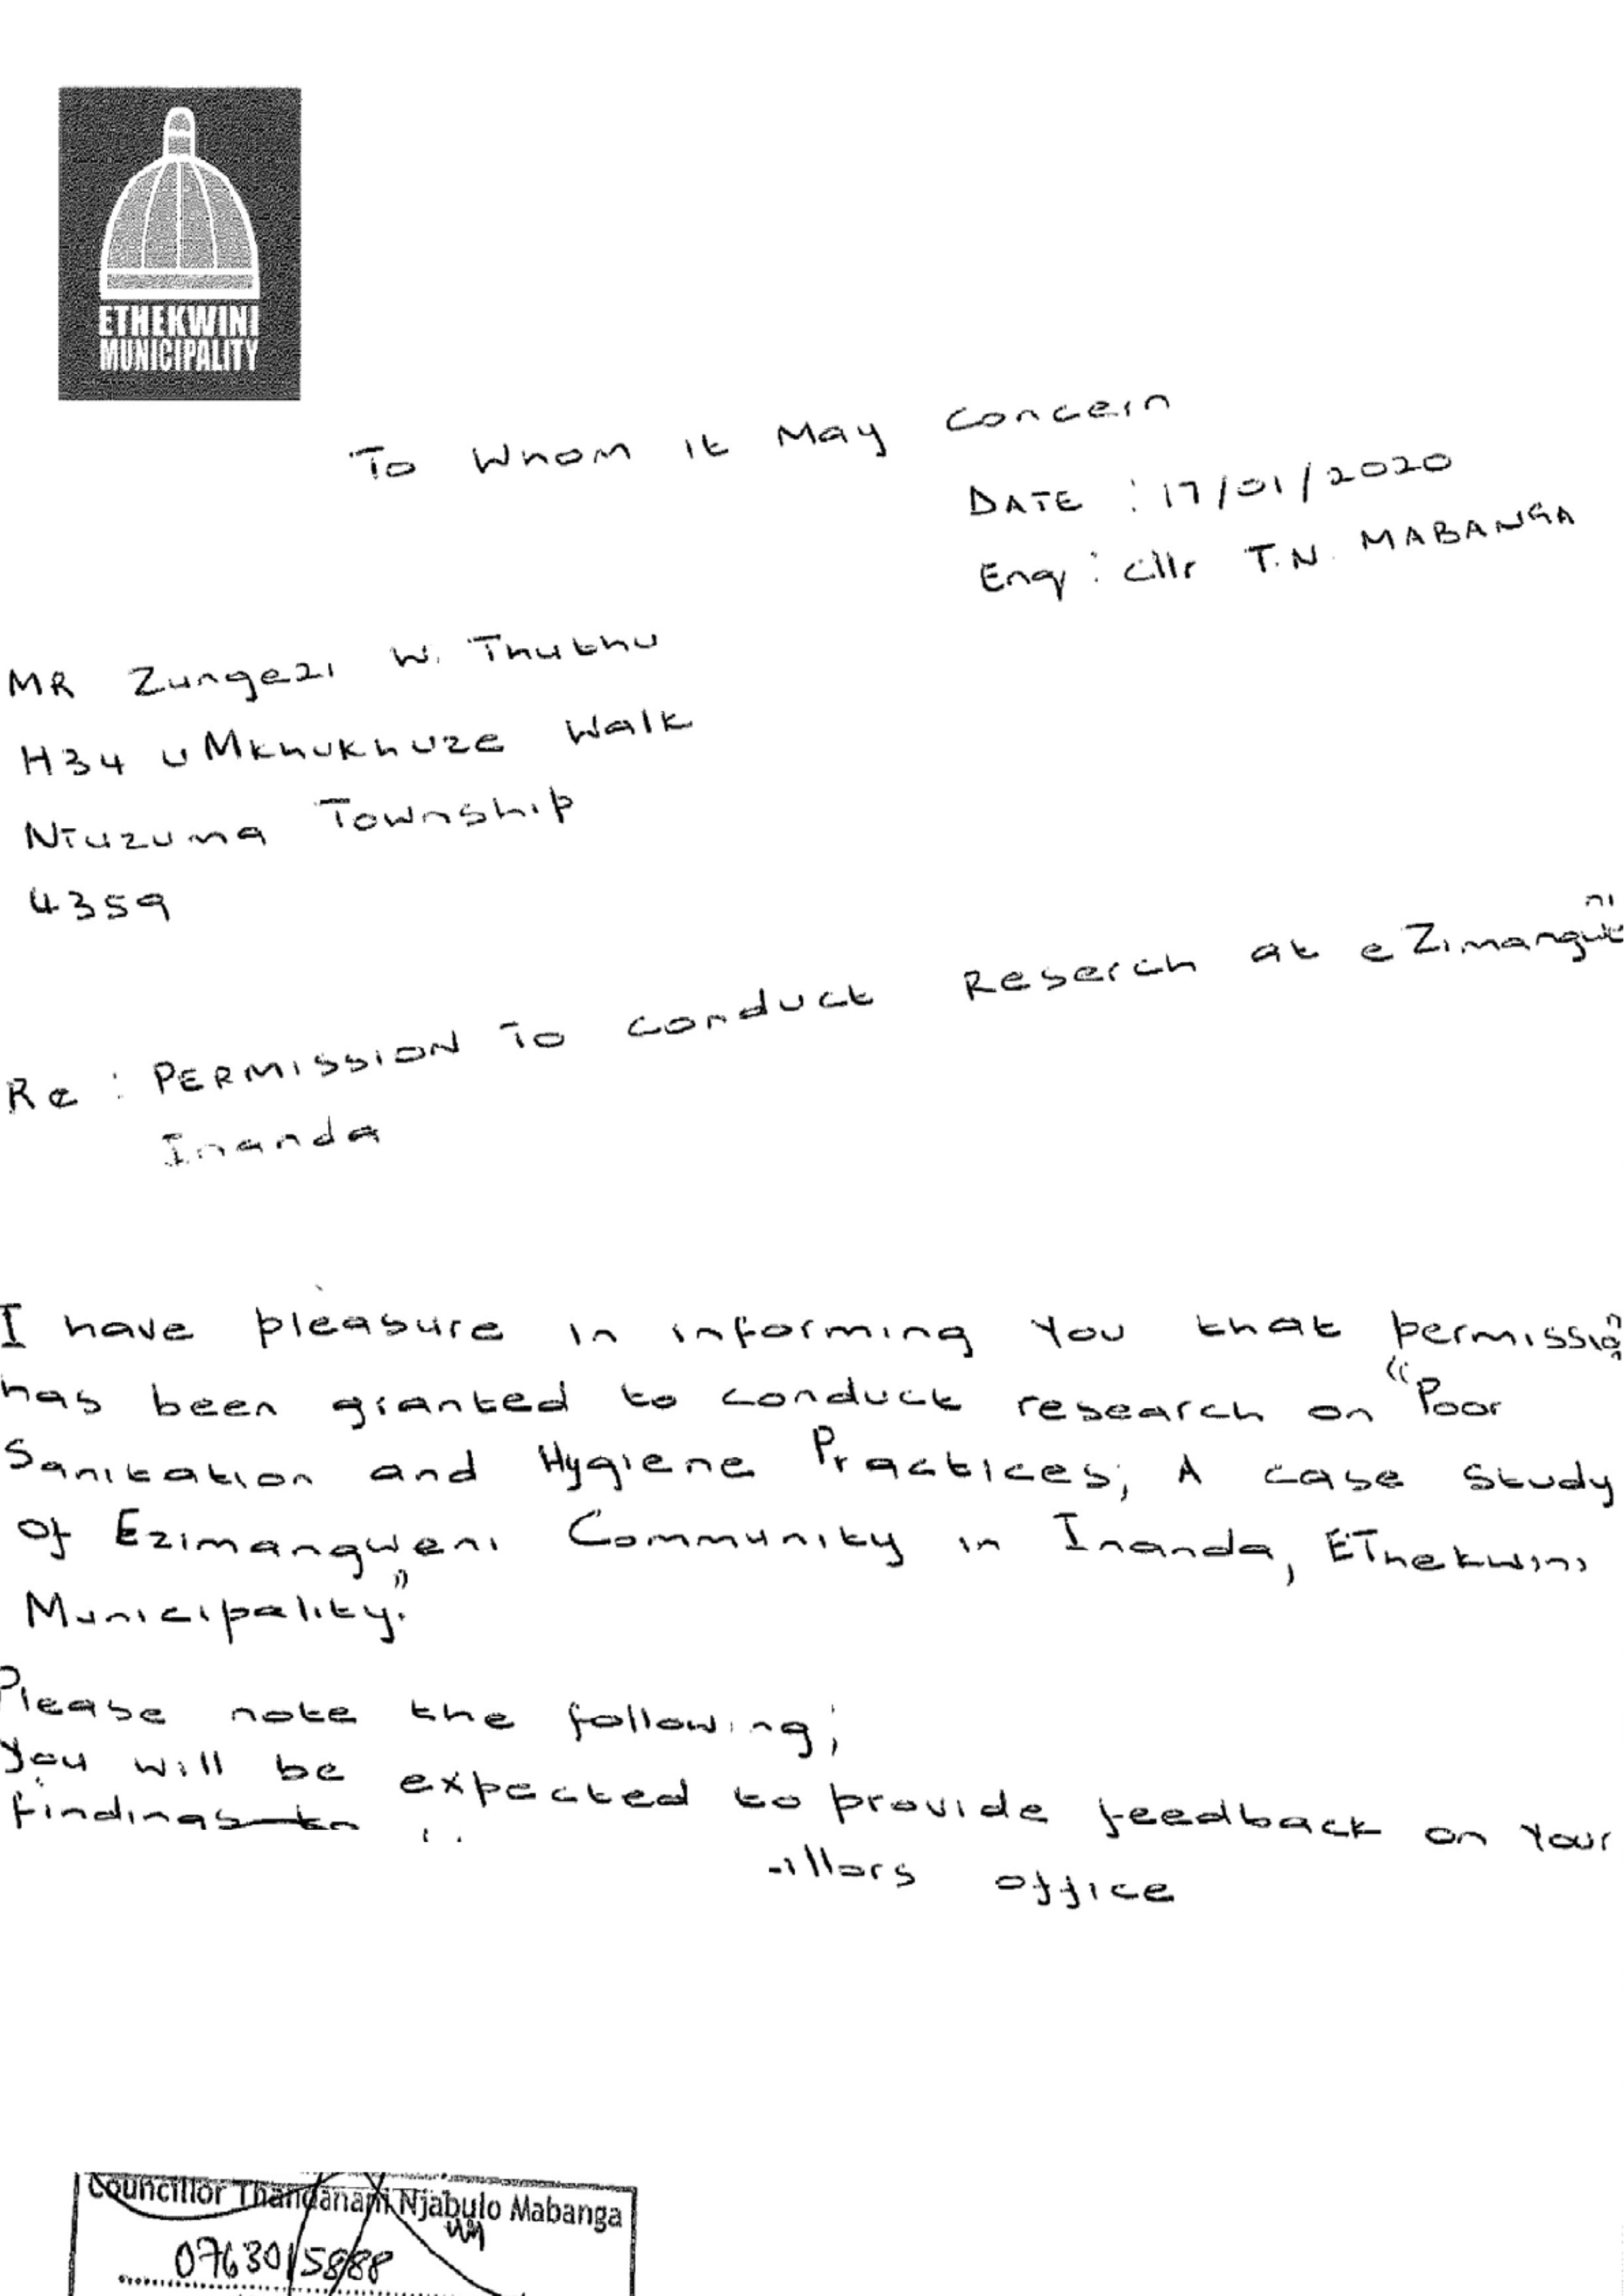 ETHEKWINI
MUNICIPALITY
To Whom it May Concern
DATE : 17/01/2020
Enq : Cllr T.N. MABANGA
MR Zungezi W. Thuthu
H34 uMkhukhuze Walk
Ntuzuma Township
4359
Re : PERMISSION To conduct Reserch at
Inanda
I have pleasure in informing You that permission
has been granted to conduct research on "Poor
Sanitation and Hygiene Practices; A case study
Of Ezimangweni Community in Inanda, EThekwini
Municipality."
Please note the following;
You will be expected to provide feedback on Your
findings to
office
Councillor Thandanani Njabulo Mabanga
0763015888